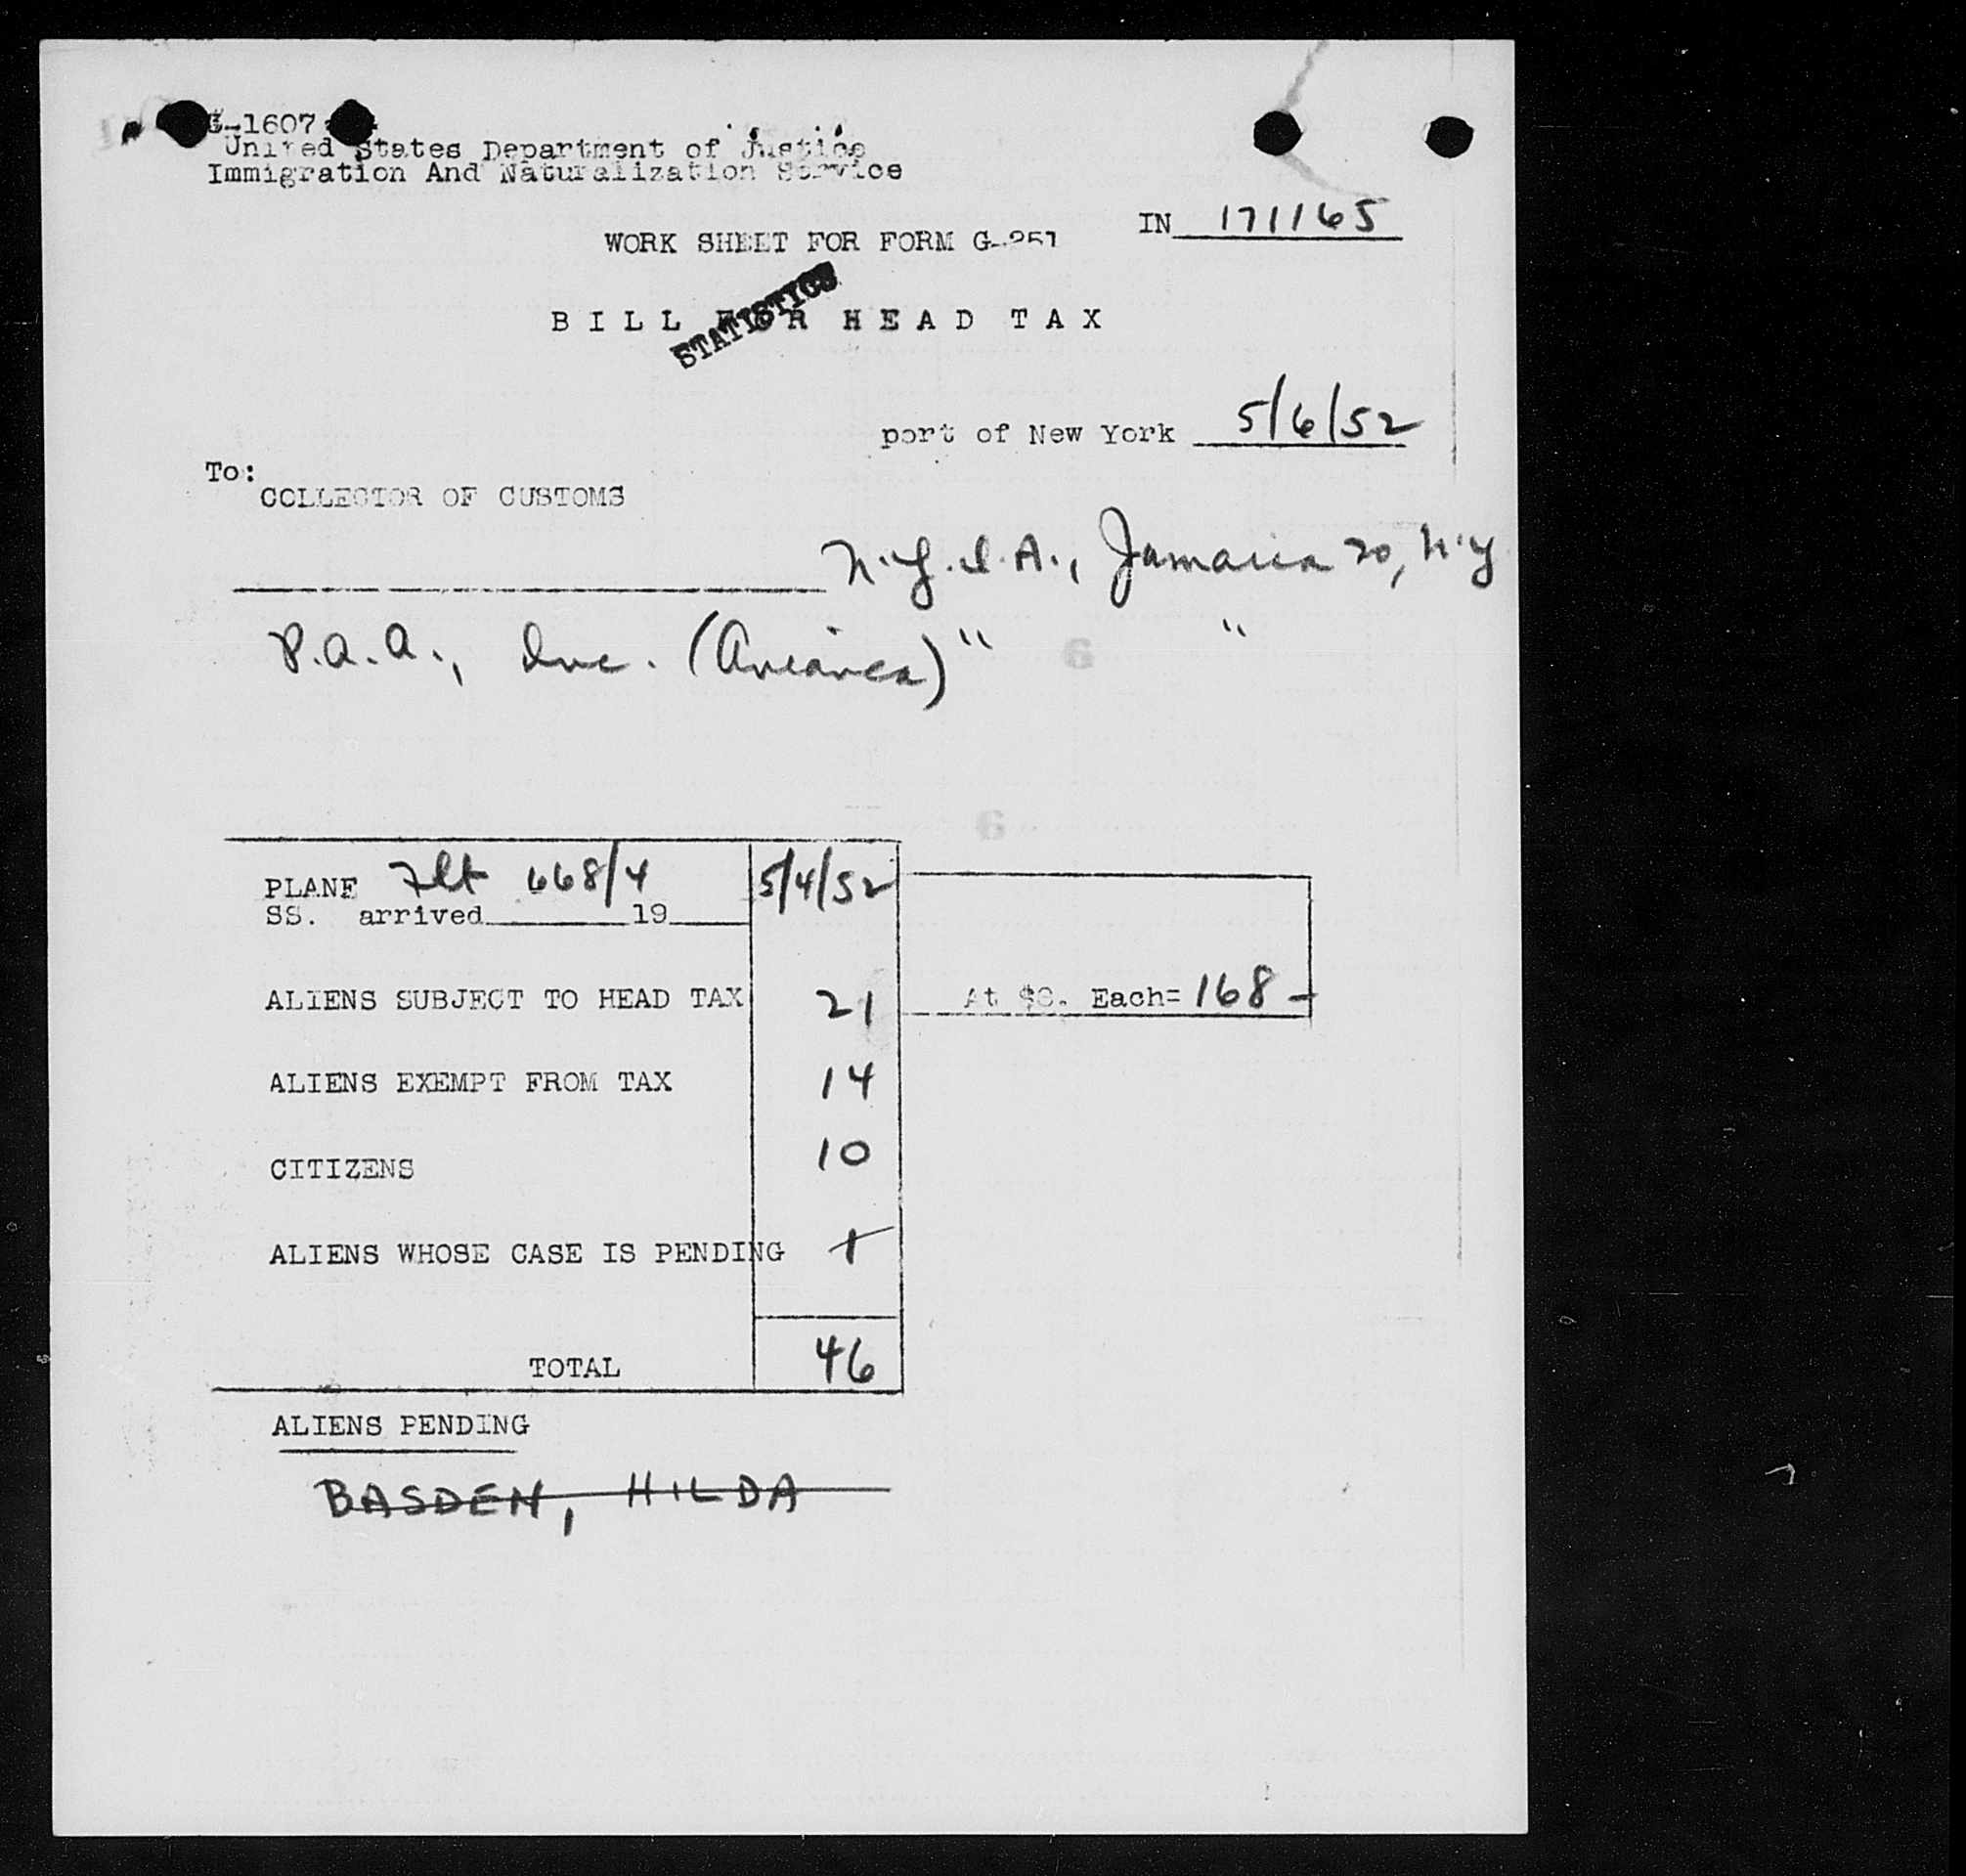 G-1607
United States Department of Justice
Immigration And Naturalization Service
IN 171165
WORK SHEET FOR FORM G-251
BILL FOR HEAD TAX
STATISTICS
port of New York 5/6/52
To:
COLLECTOR OF CUSTOMS
N.Y.I.A., Jamaica 20, N.Y
P.A.A., Inc. (Avianca) " "
6
6
PLANE Flt 668/4 5/4/52
SS. arrived 19
ALIENS SUBJECT TO HEAD TAX 21 At $8. Each= 168-
ALIENS EXEMPT FROM TAX 14
CITIZENS 10
ALIENS WHOSE CASE IS PENDING 1
TOTAL 46
ALIENS PENDING
BASDEN, HILDA